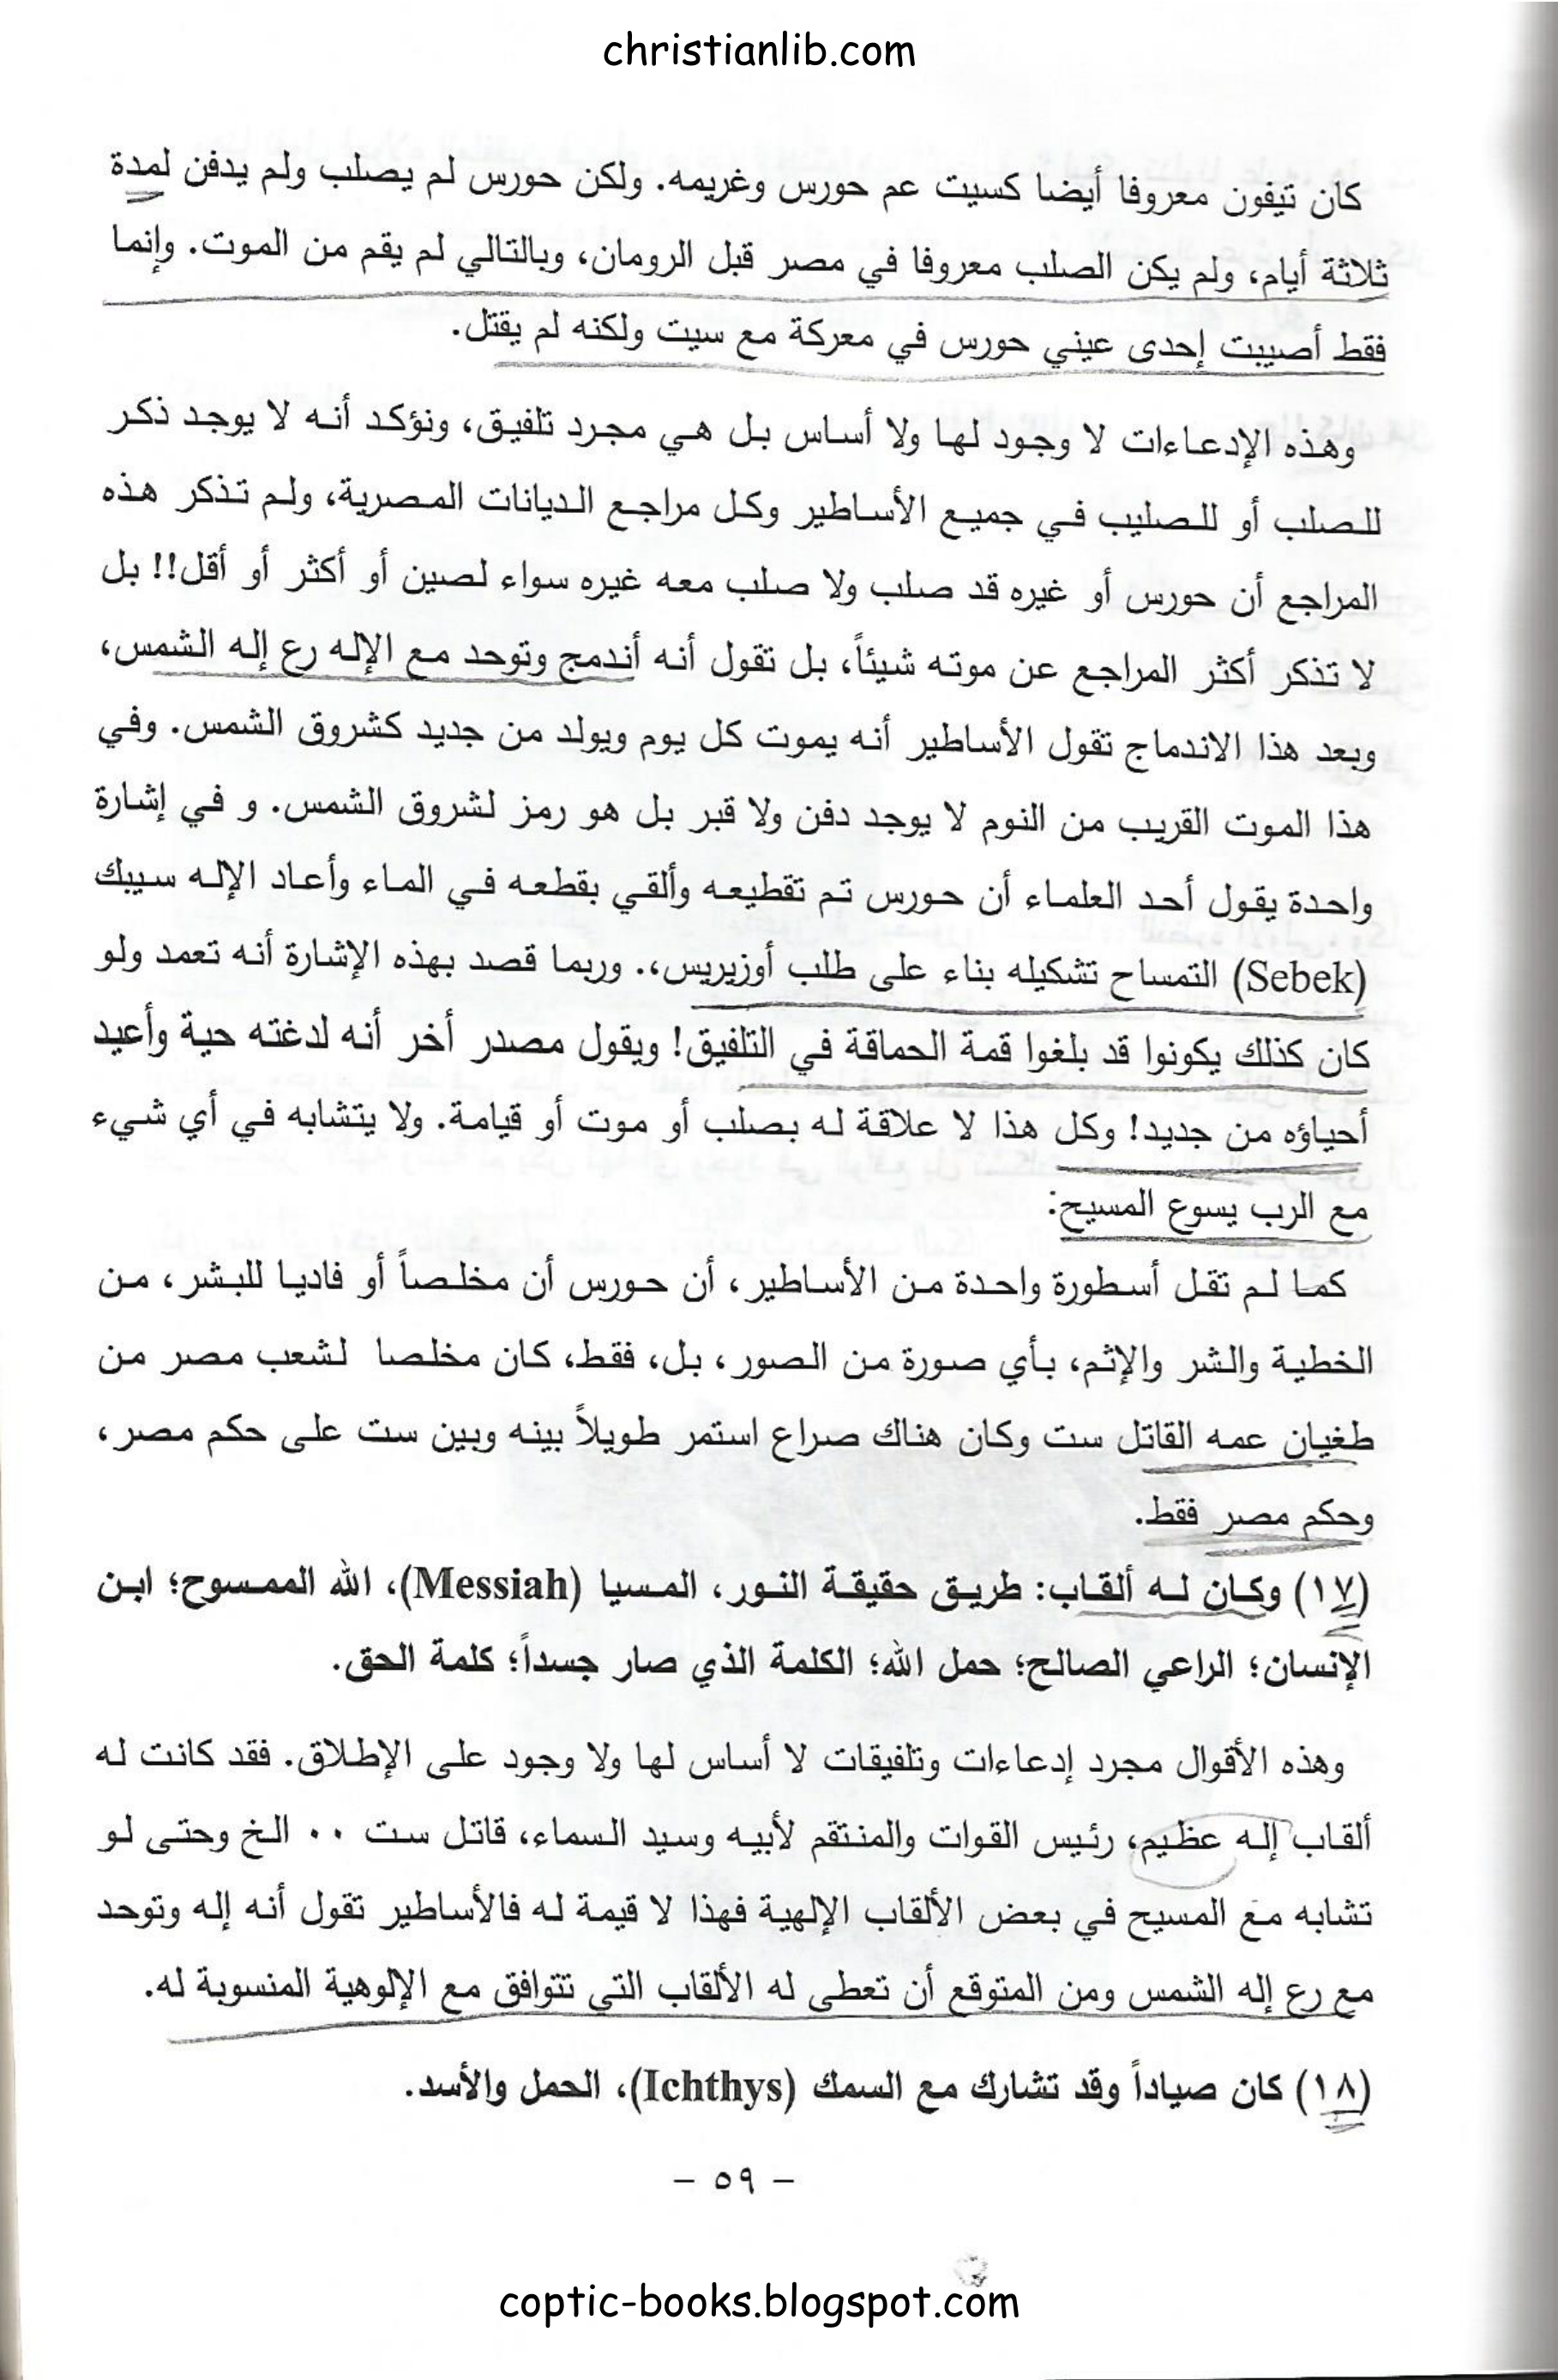 christianlib.com
كان تيفون معروفا أيضا كسيت عم حورس وغريمه. ولكن حورس لم يصلب ولم يدفن لمدة
ثلاثة أيام، ولم يكن الصلب معروفا في مصر قبل الرومان، وبالتالي لم يقم من الموت. وإنما
فقط أصيبت إحدى عيني حورس في معركة مع سيت ولكنه لم يقتل.
وهذه الإدعاءات لا وجود لها ولا أساس بل هي مجرد تلفيق، ونؤكد أنه لا يوجد ذكر
للصلب أو للصليب في جميع الأساطير وكل مراجع الديانات المصرية، ولم تذكر هذه
المراجع أن حورس أو غيره قد صلب ولا صلب معه غيره سواء لصين أو أكثر أو أقل!! بل
لا تذكر أكثر المراجع عن موته شيئاً، بل تقول أنه أندمج وتوحد مع الإله رع إله الشمس،
وبعد هذا الاندماج تقول الأساطير أنه يموت كل يوم ويولد من جديد كشروق الشمس. وفي
هذا الموت القريب من النوم لا يوجد دفن ولا قبر بل هو رمز لشروق الشمس. و في إشارة
واحدة يقول أحد العلماء أن حورس تم تقطيعه وألقي بقطعه في الماء وأعاد الإله سيبك
(Sebek) التمساح تشكيله بناء على طلب أوزيريس،. وربما قصد بهذه الإشارة أنه تعمد ولو
كان كذلك يكونوا قد بلغوا قمة الحماقة في التلفيق! ويقول مصدر أخر أنه لدغته حية وأعيد
أحياؤه من جديد! وكل هذا لا علاقة له بصلب أو موت أو قيامة. ولا يتشابه في أي شيء
مع الرب يسوع المسيح:
كما لم تقل أسطورة واحدة من الأساطير، أن حورس أن مخلصاً أو فاديا للبشر، من
الخطية والشر والإثم، بأي صورة من الصور، بل، فقط، كان مخلصا لشعب مصر من
طغيان عمه القاتل ست وكان هناك صراع استمر طويلاً بينه وبين ست على حكم مصر،
وحكم مصر فقط.
(١٧) وكان له ألقاب: طريق حقيقة النور، المسيا (Messiah)، الله الممسوح؛ ابن
الإنسان؛ الراعي الصالح؛ حمل الله؛ الكلمة الذي صار جسداً؛ كلمة الحق.
وهذه الأقوال مجرد إدعاءات وتلفيقات لا أساس لها ولا وجود على الإطلاق. فقد كانت له
ألقاب إله عظيم، رئيس القوات والمنتقم لأبيه وسيد السماء، قاتل ست ٠٠ الخ وحتى لو
تشابه مع المسيح في بعض الألقاب الإلهية فهذا لا قيمة له فالأساطير تقول أنه إله وتوحد
مع رع إله الشمس ومن المتوقع أن تعطى له الألقاب التي تتوافق مع الإلوهية المنسوبة له.
(١٨) كان صياداً وقد تشارك مع السمك (Ichthys)، الحمل والأسد.
– ٥٩ –
coptic-books.blogspot.com